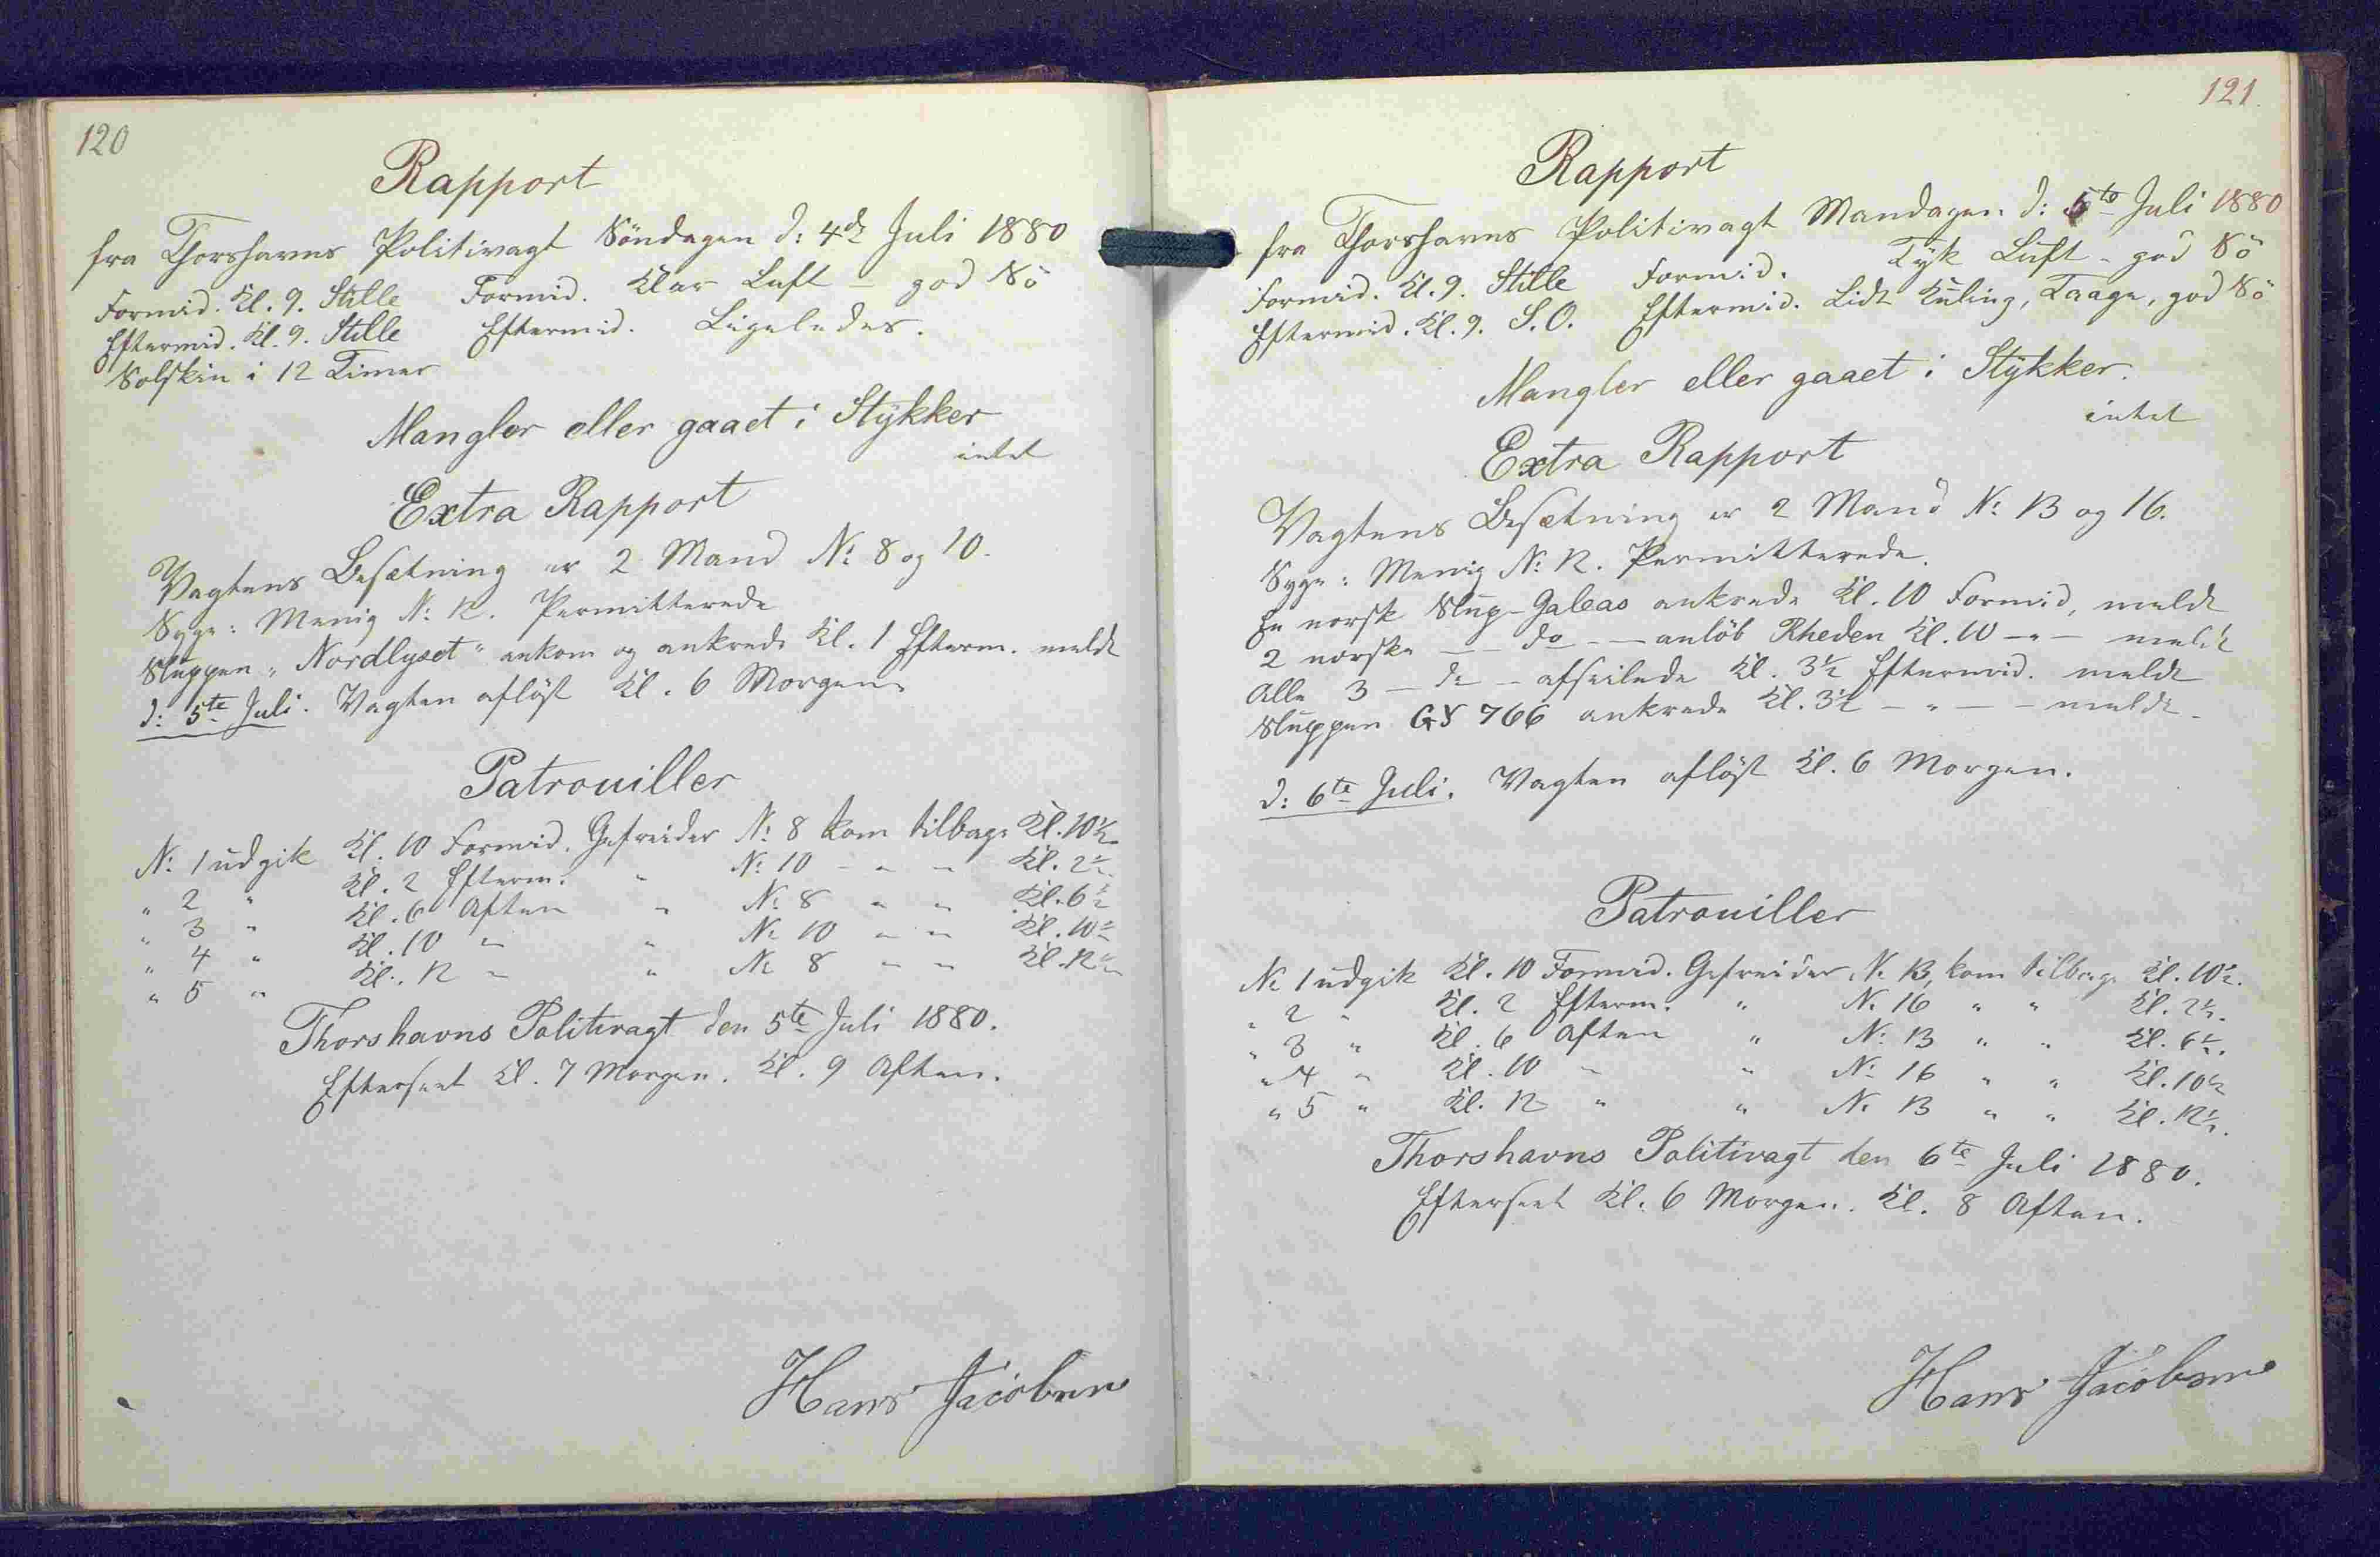 120
Rapport
fra Thorshavns Politivagt Söndagen d: 4de Juli 1880
Formid. Kl. 9. Stille Formid. Klar Luft – god Sö
Eftermid. Kl. 9. Stille Eftermid. Ligeledes.
Solskin i 12 Timer
Mangler eller gaaet i Stykker
intet
Extra Rapport
Vagtens Besætning er 2 Mand No 8 og 10.
Syge: Menig No 12. Permitterede
Sluppen „Nordlyset" ankom og ankrede Kl. 1 Efterm. meldt
d: 5te Juli. Vagten aflöst Kl. 6 Morgen
Patrouiller
No 1 udgik Kl. 10 Formid. Gefreider No 8 kom tilbage Kl. 10½
" 2 " Kl. 2 Efterm. " No 10 – " – Kl. 2½
" 3 " Kl. 6 Aften " No 8 " " Kl. 6½
" 4 " Kl. 10 " " No 10 " " Kl. 10½
" 5 " Kl. 12 " " No 8 " " Kl. 12½
Thorshavns Politivagt den 5te Juli 1880.
Efterseet Kl. 7 Morgen. Kl. 9 Aften.
Hans Jacobsen
121.
Rapport
fra Thorshavns Politivagt Mandagen d: 5te Juli 1880
Formid. Kl. 9. Stille Formid. Tyk Luft – god Sö
Eftermid. Kl. 9. S.O. Eftermid. Lidt Kuling, Taage, god Sö
Mangler eller gaaet i Stykker.
intet
Extra Rapport
Vagtens Besætning er 2 Mand No 13 og 16.
Syge: Menig No 12. Permitterede.
En norsk Slup-Galeas ankrede Kl. 10 Formid, meldt
2 norske – do – anlöb Rheden Kl. 10 – " – meldt
Alle 3 – do – afseilede Kl. 3½ Eftermid. meldt
Sluppen GS 766 ankrede Kl. 3½ – " – – meldt.
d: 6te Juli. Vagten aflöst Kl. 6 Morgen.
Patrouiller
No 1 udgik Kl. 10 Formid. Gefreider No 13, kom tilbage Kl. 10½.
" 2 " Kl. 2 Efterm. " No 16 " " Kl. 2½.
" 3 " Kl. 6 Aften " No 13 " " Kl. 6½.
" 4 " Kl. 10 " " No 16 " " Kl. 10½
" 5 " Kl. 12 " " No 13 " " Kl. 12½.
Thorshavns Politivagt den 6te Juli 1880.
Efterseet Kl. 6 Morgen. Kl. 8 Aften.
Hans Jacobsen